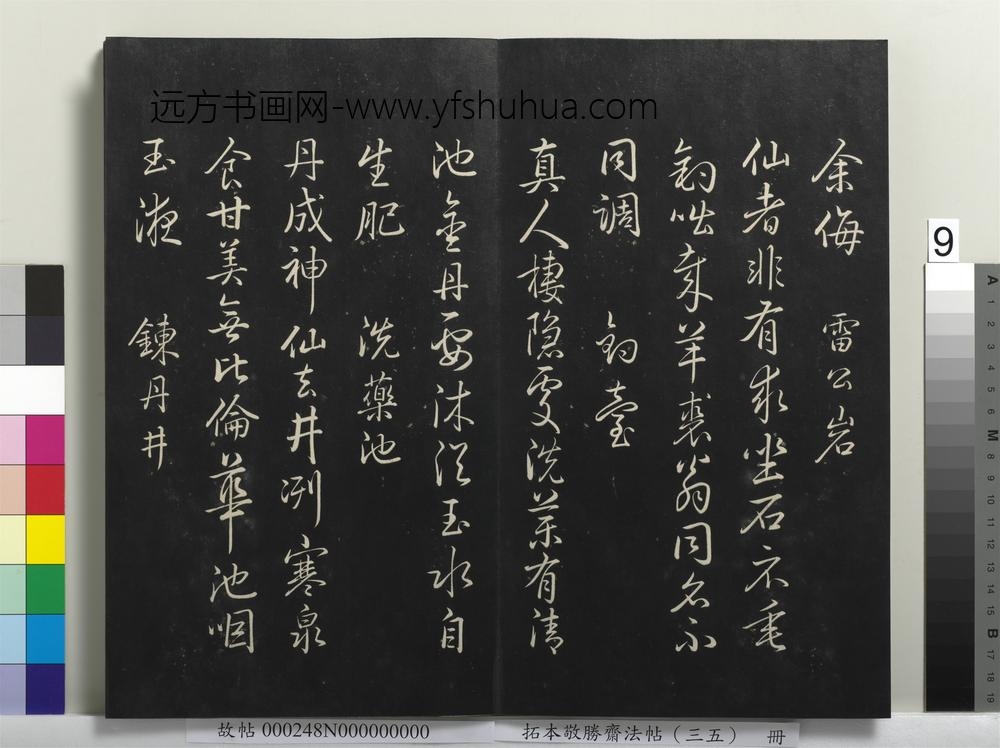 远方书画网-www.yfshuhua.com
余侮 雷公岩
仙者非有求坐石不垂
釣咄哉羊裘翁同名不
同調 釣臺
真人棲隱處洗藥有清
池金丹要沐浴玉水自
生肥 洗藥池
丹成神仙去井冽寒泉
食甘美無比倫華池咽
玉液 鍊丹井
故帖 000248N000000000
拓本敬勝齋法帖（三五） 冊
9
A 1 2 3 4 5 6 M 8 9 10 11 12 13 14 15 B 17 18 19